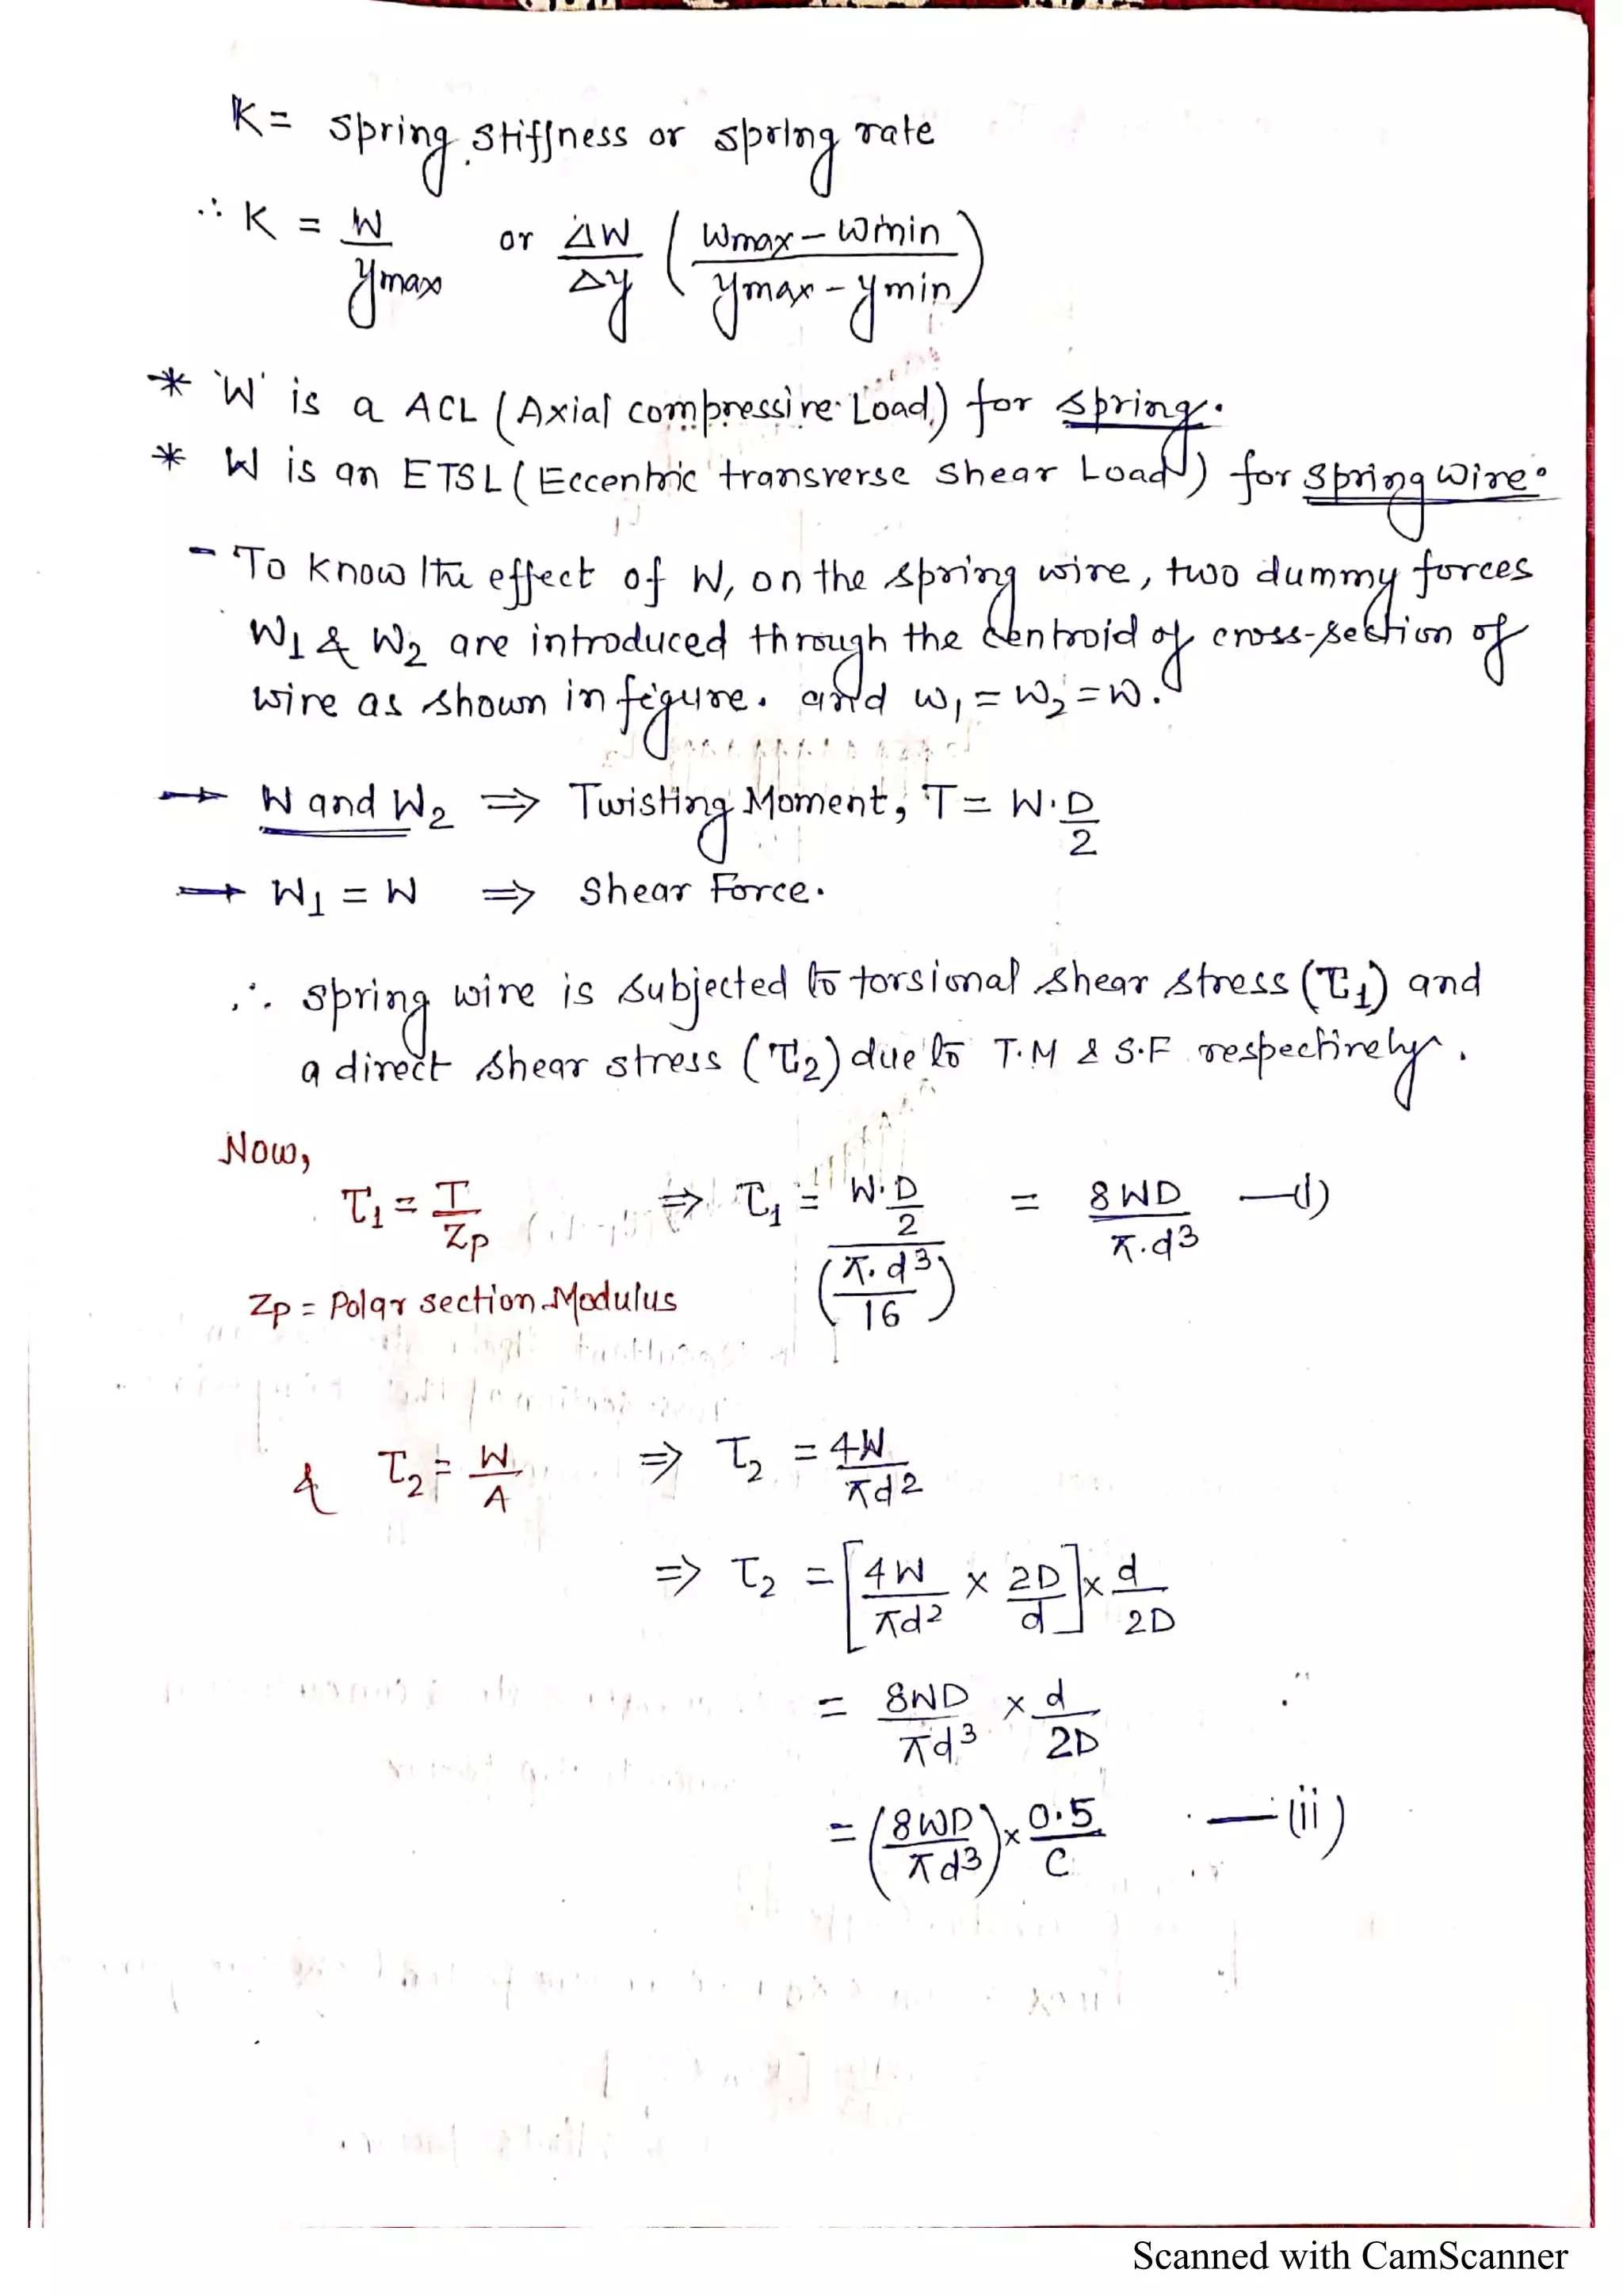 K = spring stiffness or spring rate
∴ K = W/ymax or ΔW/Δy (Wmax - Wmin / ymax - ymin)
* 'W' is a ACL (Axial compressive Load) for spring.
* W is an ETSL (Eccentric transverse shear Load) for spring wire.
- To know the effect of W, on the spring wire, two dummy forces
W1 & W2 are introduced through the centroid of cross-section of
wire as shown in figure. and W1 = W2 = W.
→ W and W2 ⇒ Twisting Moment, T = W.D/2
→ W1 = W ⇒ Shear Force.
∴ spring wire is subjected to torsional shear stress (τ1) and
a direct shear stress (τ2) due to T.M & S.F respectively.
Now,
τ1 = T/Zp ⇒ τ1 = (W.D/2)/(π.d³/16) = 8WD/π.d³ —(i)
Zp = Polar section Modulus
& τ2 = W/A ⇒ τ2 = 4W/πd²
⇒ τ2 = [4W/πd² × 2D/d] × d/2D
= 8WD/πd³ × d/2D
= (8WD/πd³) × 0.5/C —(ii)
Scanned with CamScanner